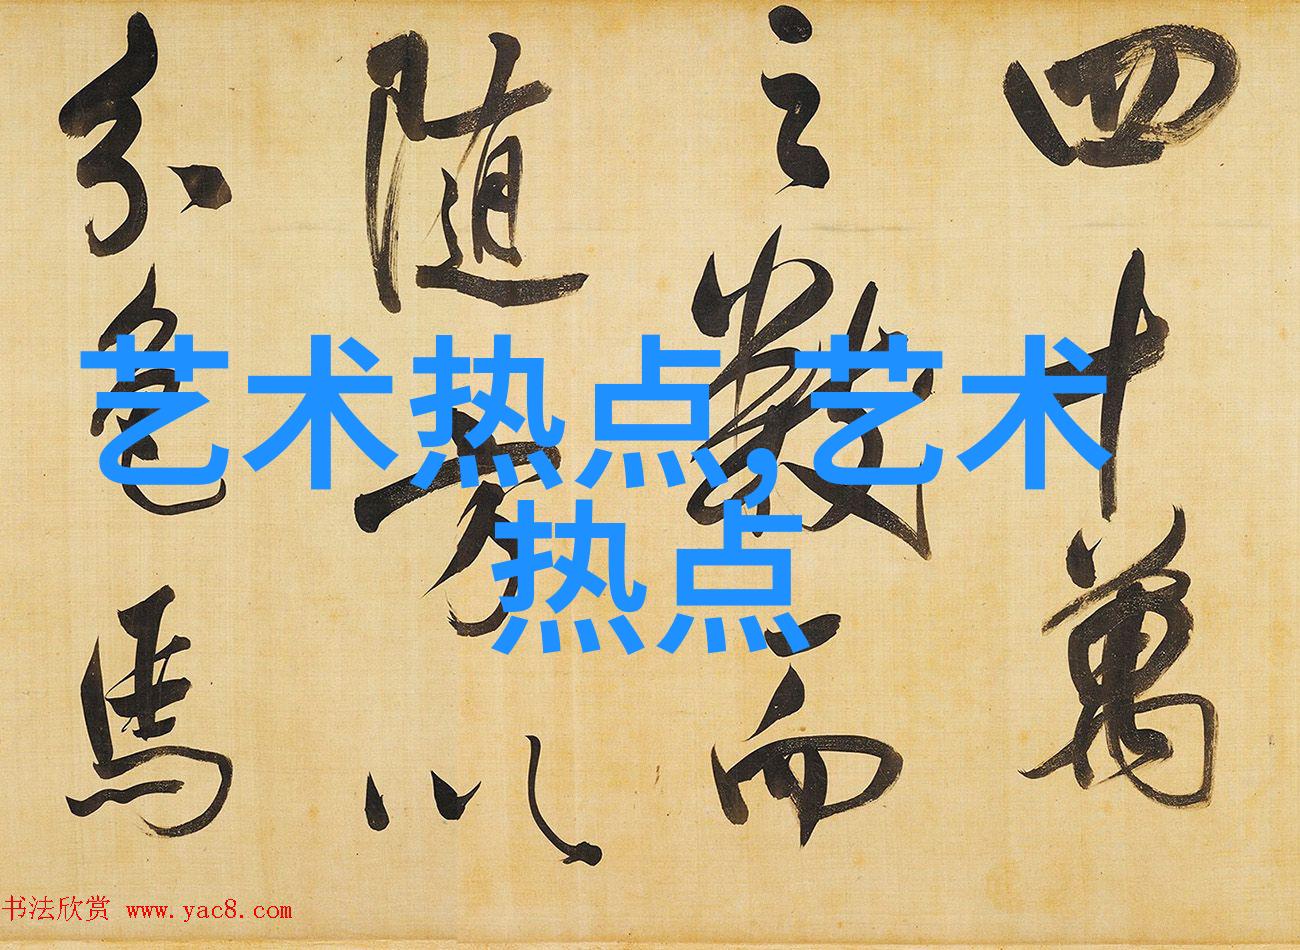 四十萬
之數而
随方以
分色馬
艺术热点,艺术
热点
书法欣赏 www.yac8.com